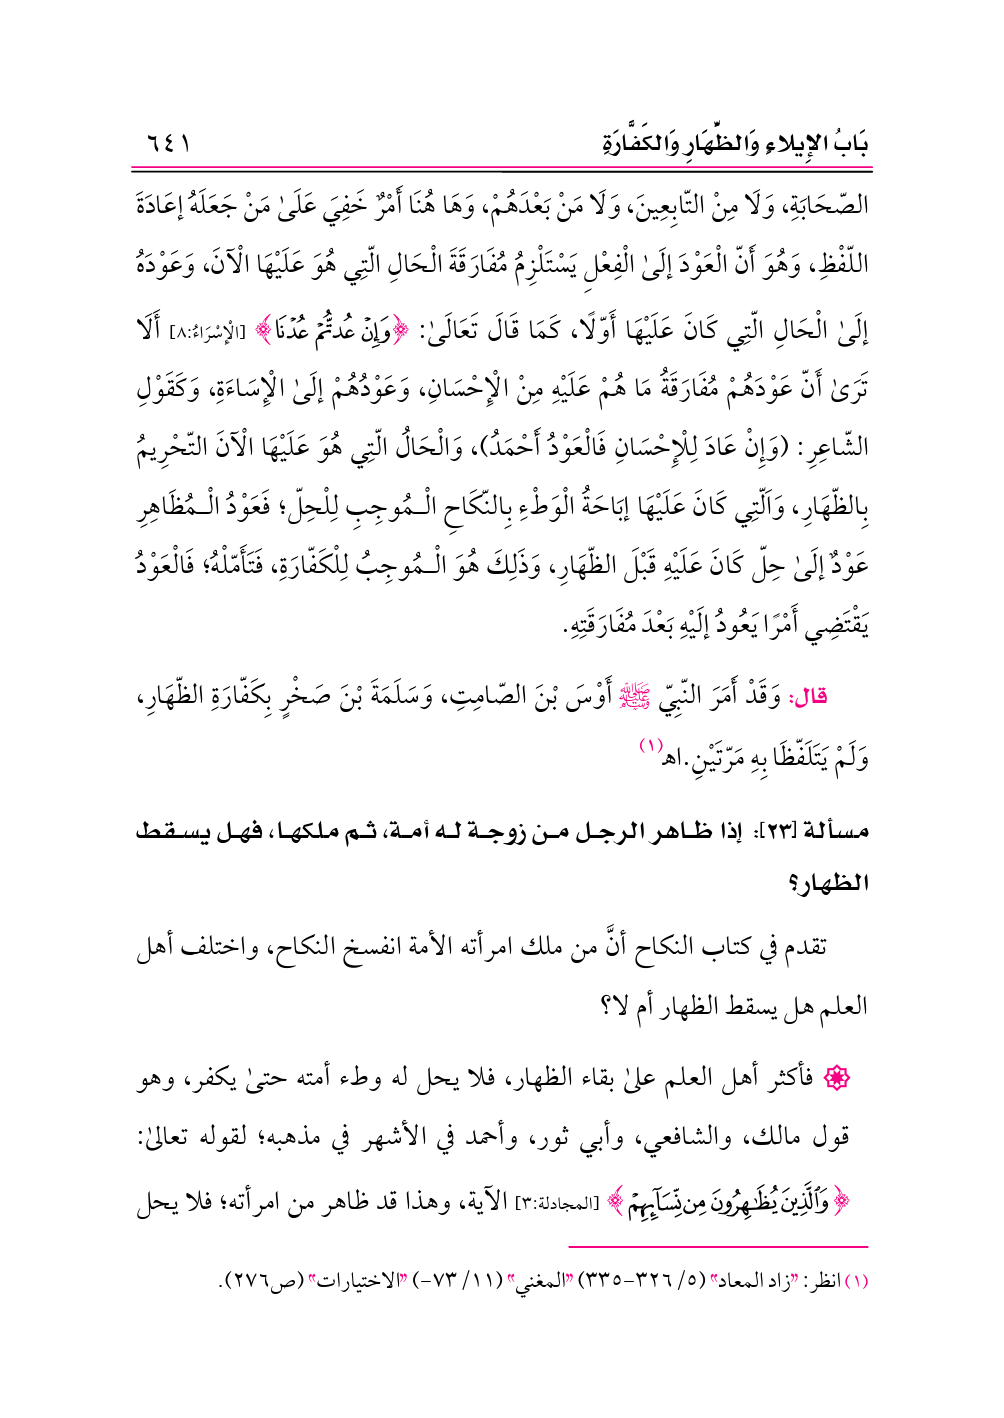 بَابُ الإِيلاءِ وَالظِّهَارِ وَالكَفَّارَةِ ٦٤١
الصّحَابَةِ، وَلَا مِنْ التّابِعِينَ، وَلَا مَنْ بَعْدَهُمْ، وَهَا هُنَا أَمْرٌ خَفِيَ عَلَىٰ مَنْ جَعَلَهُ إعَادَةَ
اللّفْظِ، وَهُوَ أَنّ الْعَوْدَ إلَىٰ الْفِعْلِ يَسْتَلْزِمُ مُفَارَقَةَ الْحَالِ الّتِي هُوَ عَلَيْهَا الْآنَ، وَعَوْدَهُ
إلَىٰ الْحَالِ الّتِي كَانَ عَلَيْهَا أَوّلًا، كَمَا قَالَ تَعَالَىٰ: ﴿وَإِنْ عُدتُّمْ عُدْنَا﴾ [الْإِسْرَاءُ:٨] أَلَا
تَرَىٰ أَنّ عَوْدَهُمْ مُفَارَقَةُ مَا هُمْ عَلَيْهِ مِنْ الْإِحْسَانِ، وَعَوْدُهُمْ إلَىٰ الْإِسَاءَةِ، وَكَقَوْلِ
الشّاعِرِ: (وَإِنْ عَادَ لِلْإِحْسَانِ فَالْعَوْدُ أَحْمَدُ)، وَالْحَالُ الّتِي هُوَ عَلَيْهَا الْآنَ التّحْرِيمُ
بِالظّهَارِ، وَاَلّتِي كَانَ عَلَيْهَا إبَاحَةُ الْوَطْءِ بِالنّكَاحِ الْـمُوجِبِ لِلْحِلّ؛ فَعَوْدُ الْـمُظَاهِرِ
عَوْدٌ إلَىٰ حِلّ كَانَ عَلَيْهِ قَبْلَ الظّهَارِ، وَذَلِكَ هُوَ الْـمُوجِبُ لِلْكَفّارَةِ، فَتَأَمّلْهُ؛ فَالْعَوْدُ
يَقْتَضِي أَمْرًا يَعُودُ إلَيْهِ بَعْدَ مُفَارَقَتِهِ.
قال: وَقَدْ أَمَرَ النّبِيّ ﷺ أَوْسَ بْنَ الصّامِتِ، وَسَلَمَةَ بْنَ صَخْرٍ بِكَفّارَةِ الظّهَارِ،
وَلَمْ يَتَلَفّظَا بِهِ مَرّتَيْنِ.اهـ(١)
مسألة [٢٣]: إذا ظاهر الرجل من زوجة له أمة، ثم ملكها، فهل يسقط
الظهار؟
تقدم في كتاب النكاح أنَّ من ملك امرأته الأمة انفسخ النكاح، واختلف أهل
العلم هل يسقط الظهار أم لا؟
۞ فأكثر أهل العلم علىٰ بقاء الظهار، فلا يحل له وطء أمته حتىٰ يكفر، وهو
قول مالك، والشافعي، وأبي ثور، وأحمد في الأشهر في مذهبه؛ لقوله تعالىٰ:
﴿وَٱلَّذِينَ يُظَـٰهِرُونَ مِن نِّسَآئِهِمْ﴾ [المجادلة:٣] الآية، وهذا قد ظاهر من امرأته؛ فلا يحل
(١) انظر: "زاد المعاد" (٥/ ٣٢٦-٣٣٥) "المغني" (١١/ ٧٣-) "الاختيارات" (ص٢٧٦).